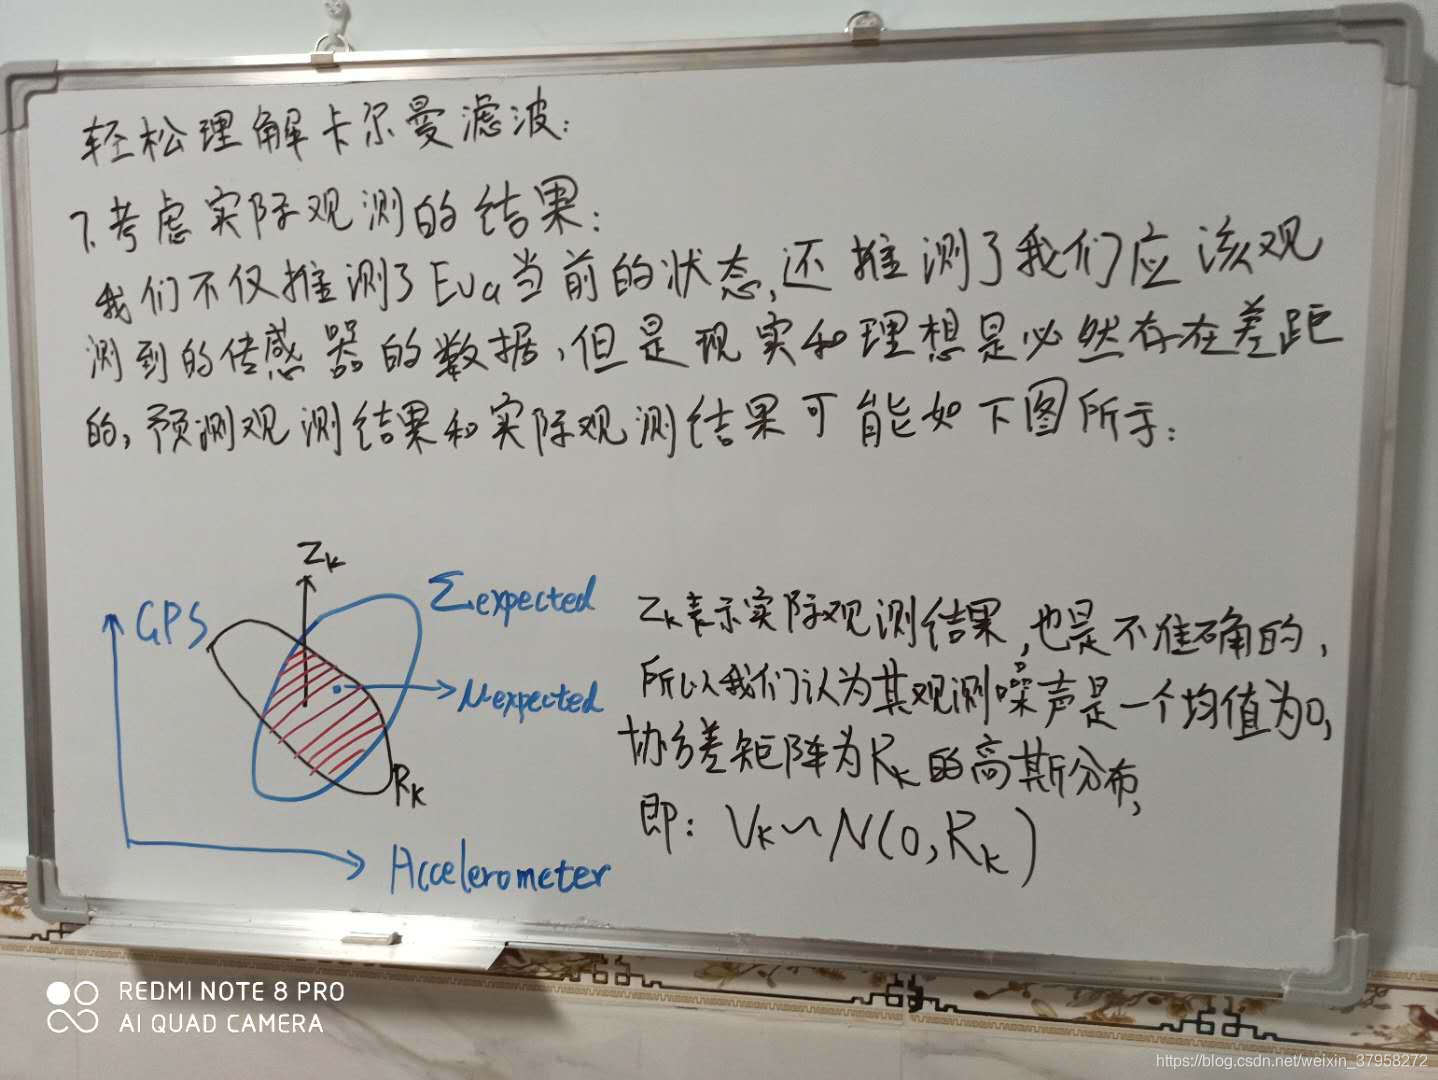 轻松理解卡尔曼滤波:
7.考虑实际观测的结果:
我们不仅推测了Eva当前的状态,还推测了我们应该观
测到的传感器的数据,但是现实和理想是必然存在差距
的,预测观测结果和实际观测结果可能如下图所示:
Zk
GPS
Σexpected
μexpected
Rk
Accelerometer
Zk表示实际观测结果,也是不准确的,
所以我们认为其观测噪声是一个均值为0,
协方差矩阵为Rk的高斯分布,
即: Vk~N(0,Rk)
REDMI NOTE 8 PRO
AI QUAD CAMERA
https://blog.csdn.net/weixin_37958272